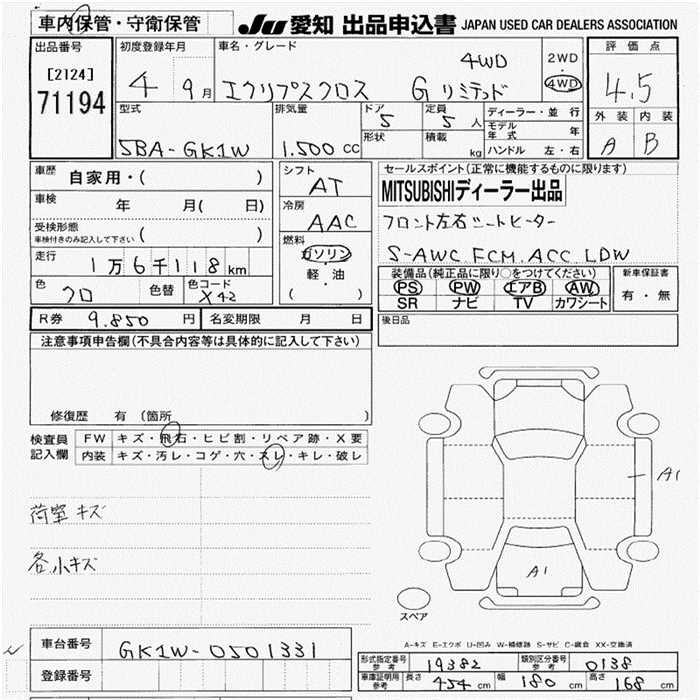 車内保管・守衛保管
JU 愛知 出品申込書 JAPAN USED CAR DEALERS ASSOCIATION
出品番号
[2124]
71194
初度登録年月
4 9月
車名・グレード
エクリプスクロス G リミテッド 4WD
2WD
・
4WD
評価点
4.5
外装 内装
A B
型式
5BA-GK1W
排気量
1.500 cc
ドア
5
形状
定員
5人
積載
kg
ディーラー・並行
モデル年式 年
ハンドル 左・右
車歴
自家用・( )
車検 年 月( 日)
受検形態
車検付きのみ記入して下さい ( )
走行
1万6千118km
色
クロ
色替
色コード
X42
シフト
AT
冷房
AAC
燃料
ガソリン
・
軽・油
( )
セールスポイント(正常に機能するものに限ります)
MITSUBISHIディーラー出品
フロント左右シートヒーター
S-AWC.FCM.ACC.LDW
装備品(純正品に限り○をつけてください)
PS PW エアB AW
SR ナビ TV カワシート
新車保証書
有・無
R券 9.850 円 名変期限 月 日
後日品
注意事項申告欄(不具合内容等は具体的に記入して下さい)
修復歴 有(箇所 )
検査員記入欄
FW キズ・飛石・ヒビ割・リペア跡・X要
内装 キズ・汚レ・コゲ・穴・スレ・キレ・破レ
荷室キズ
各小キズ
A1
A1
スペア
A-キズ E-エクボ U-凹み W-補修跡 S-サビ C-腐食 XX-交換済
車台番号 GK1W-0501331
登録番号
形式指定番号参考 19382 類別区分番号参考 0138
車庫証明用参考 長さ 454cm 幅 180cm 高さ 168cm